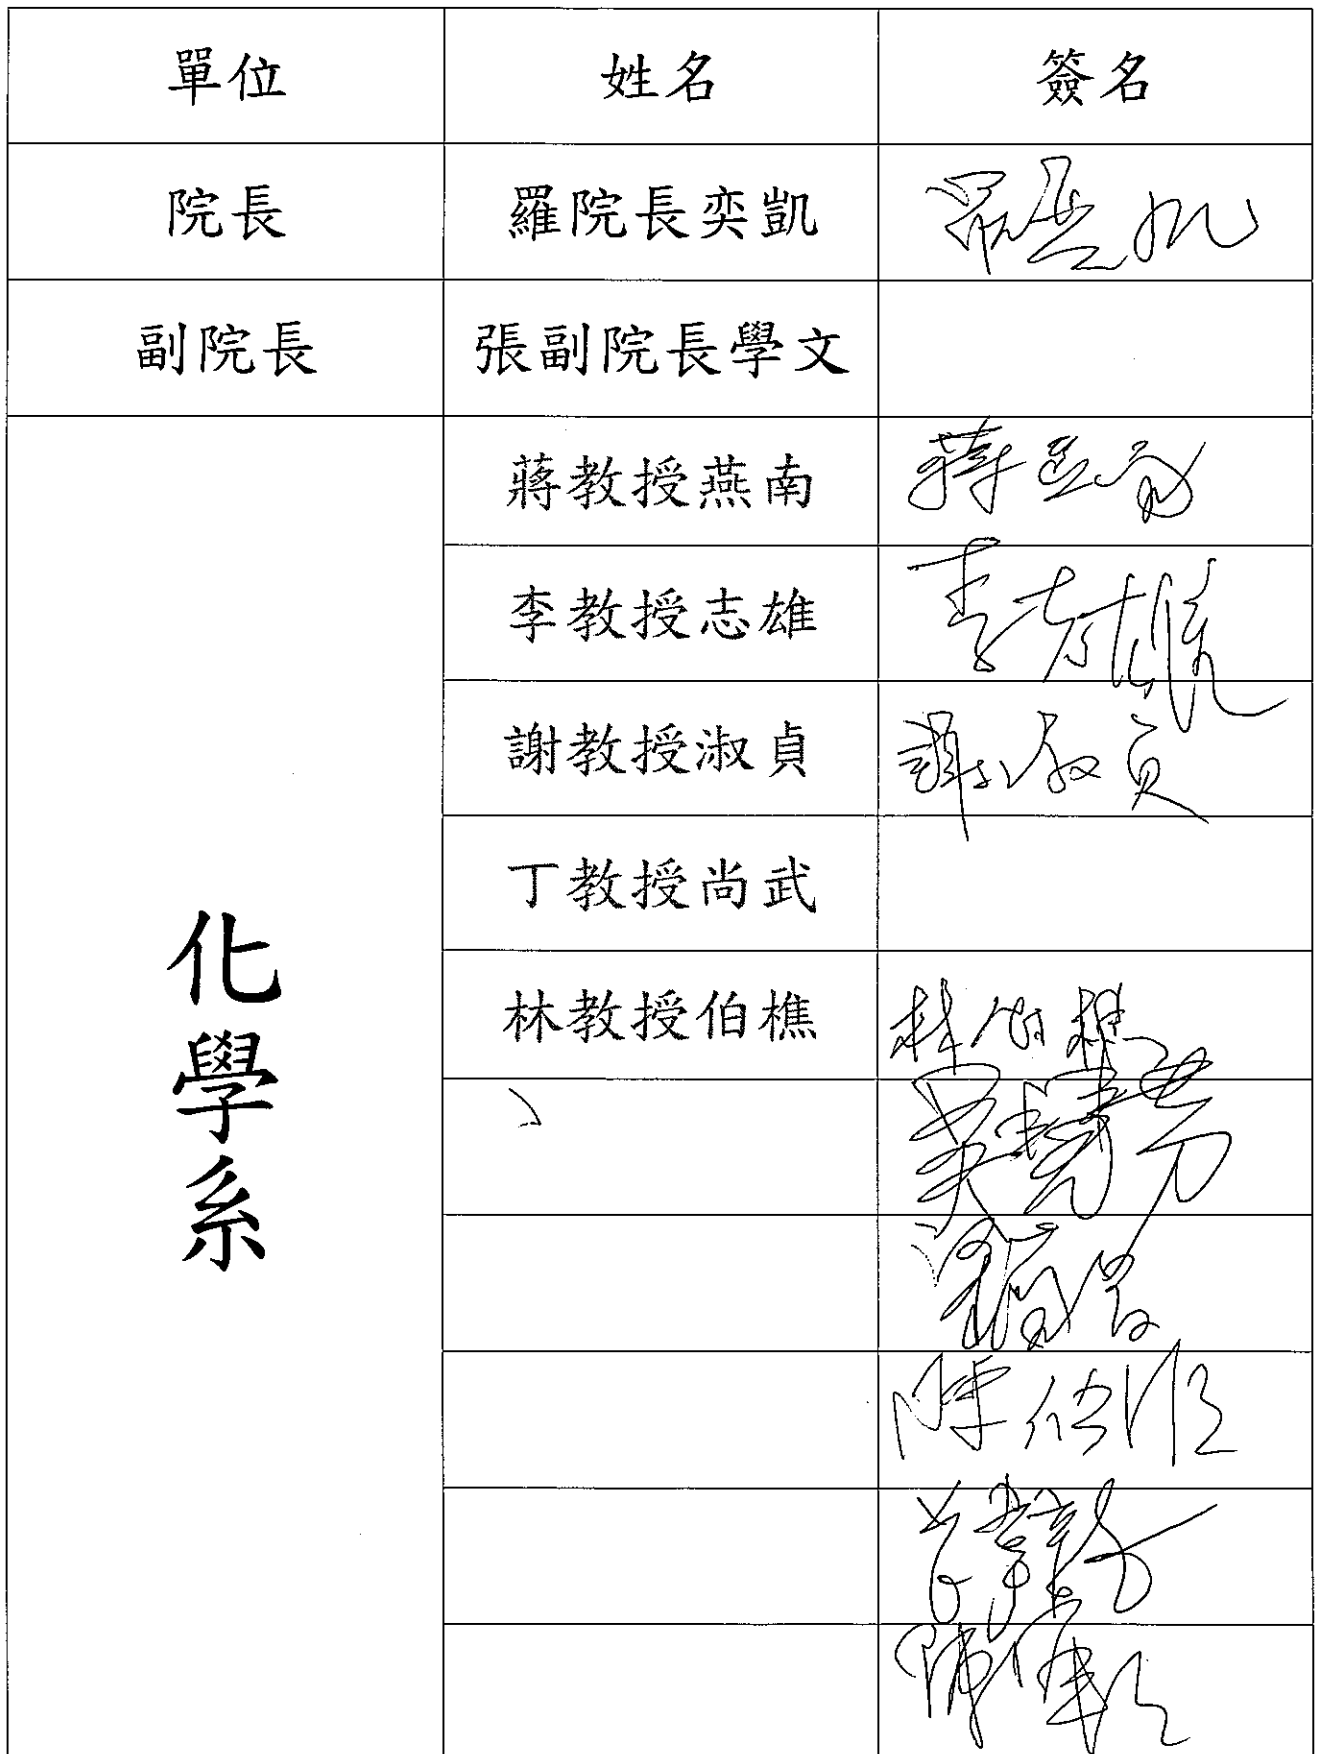 單位 姓名 簽名
院長 羅院長奕凱 羅奕凱
副院長 張副院長學文
化學系
蔣教授燕南 蔣燕南
李教授志雄 李志雄
謝教授淑貞 謝淑貞
丁教授尚武
林教授伯樵 林伯樵